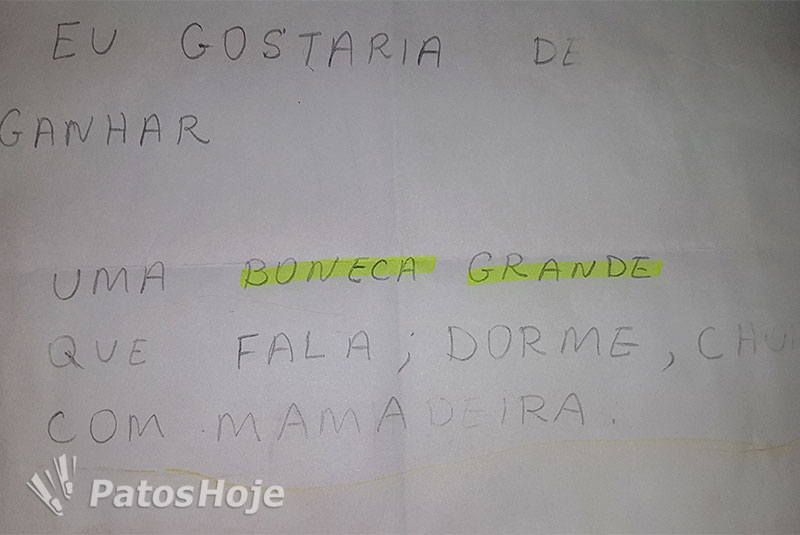 EU GOSTARIA DE
GANHAR
UMA BONECA GRANDE
QUE FALA; DORME, CHO
COM MAMADEIRA.
PatosHoje